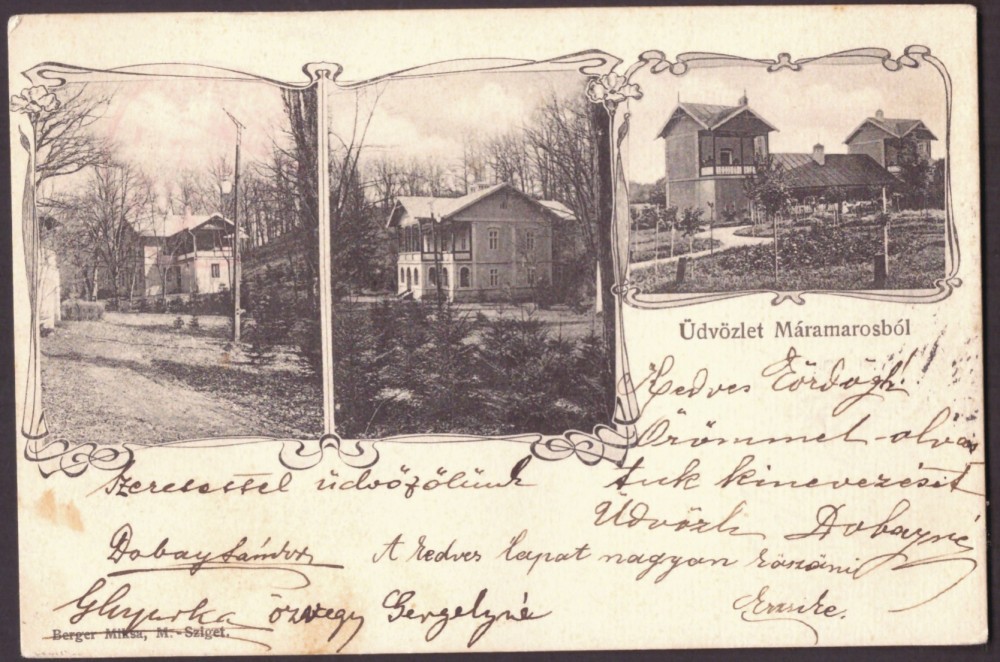 Üdvözlet Máramarosból
Kedves Ördögh!
Örömmel olvas
tuk kinevezését
Üdvözli Dobayné
Szeretettel üdvözölünk
Dobay Sándor
A kedves lapot nagyon köszöni
özvegy Gergelyné
Berger Miksa, M.-Sziget.